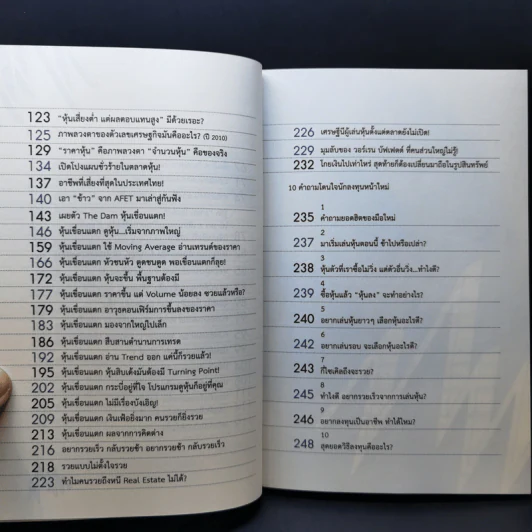 123 "หุ้นเสี่ยงต่ำ แต่ผลตอบแทนสูง" มีด้วยเรอะ?
125 ภาพลวงตาของตัวเลขเศรษฐกิจมันคืออะไร? (ปี 2010)
129 "ราคาหุ้น" คือภาพลวงตา "จำนวนหุ้น" คือของจริง
134 เปิดโปงแผนชั่วร้ายในตลาดหุ้น!
137 อาชีพที่เสี่ยงที่สุดในประเทศไทย!
140 เอา "ข้าว" จาก AFET มาเล่าสู่กันฟัง
143 เผยตัว The Dam หุ้นเชื่อนแตก!
146 หุ้นเขื่อนแตก ดูหุ้น...เริ่มจากภาพใหญ่
159 หุ้นเขื่อนแตก ใช้ Moving Average อ่านเทรนด์ของราคา
166 หุ้นเขื่อนแตก หัวชนหัว ตูดชนตูด พอเขื่อนแตกก็ลุย!
172 หุ้นเขื่อนแตก หุ้นจะขึ้น พื้นฐานต้องมี
177 หุ้นเขื่อนแตก ราคาขึ้น แต่ Volume น้อยลง ซวยแล้วหรือ?
179 หุ้นเขื่อนแตก อาวุธคอนเฟิร์มการขึ้นลงของราคา
183 หุ้นเขื่อนแตก มองจากใหญ่ไปเล็ก
186 หุ้นเขื่อนแตก สืบสานตำนานการเทรด
192 หุ้นเขื่อนแตก อ่าน Trend ออก แค่นี้ก็รวยแล้ว!
195 หุ้นเขื่อนแตก หุ้นสิบเด้งมันต้องมี Turning Point!
202 หุ้นเขื่อนแตก กระบี่อยู่ที่ใจ โปรแกรมดูหุ้นก็อยู่ที่คุณ
205 หุ้นเขื่อนแตก ไม่มีเรื่องบังเอิญ!
209 หุ้นเขื่อนแตก เงินเฟ้อยิ่งมาก คนรวยก็ยิ่งรวย
213 หุ้นเขื่อนแตก ผลจากการคิดต่าง
216 อยากรวยเร็ว กลับรวยช้า อยากรวยช้า กลับรวยเร็ว
218 รวยแบบไม่ตั้งใจรวย
223 ทำไมคนรวยถึงหนี Real Estate ไม่ได้?
226 เศรษฐีนีผู้เล่นหุ้นตั้งแต่ตลาดยังไม่เปิด!
229 มุมลับของ วอร์เรน บัฟเฟตต์ ที่คนส่วนใหญ่ไม่รู้!
232 โกยเงินไปเท่าไหร่ สุดท้ายก็ต้องเปลี่ยนมาถือในรูปสินทรัพย์
10 คำถามโดนใจนักลงทุนหน้าใหม่
1
235 คำถามยอดฮิตของมือใหม่
2
237 มาเริ่มเล่นหุ้นตอนนี้ ช้าไปหรือเปล่า?
3
238 หุ้นตัวที่เราซื้อไม่วิ่ง แต่ตัวอื่นวิ่ง...ทำไงดี?
4
239 ซื้อหุ้นแล้ว "หุ้นลง" จะทำอย่างไร?
5
240 อยากเล่นหุ้นยาวๆ เลือกหุ้นอะไรดี?
6
242 อยากเล่นรอบ จะเลือกหุ้นอะไรดี?
7
243 กี่ไซเคิลถึงจะรวย?
8
245 ทำไงดี อยากรวยเร็วจากการเล่นหุ้น?
9
246 อยากลงทุนเป็นอาชีพ ทำได้ไหม?
10
248 สุดยอดวิธีลงทุนคืออะไร?